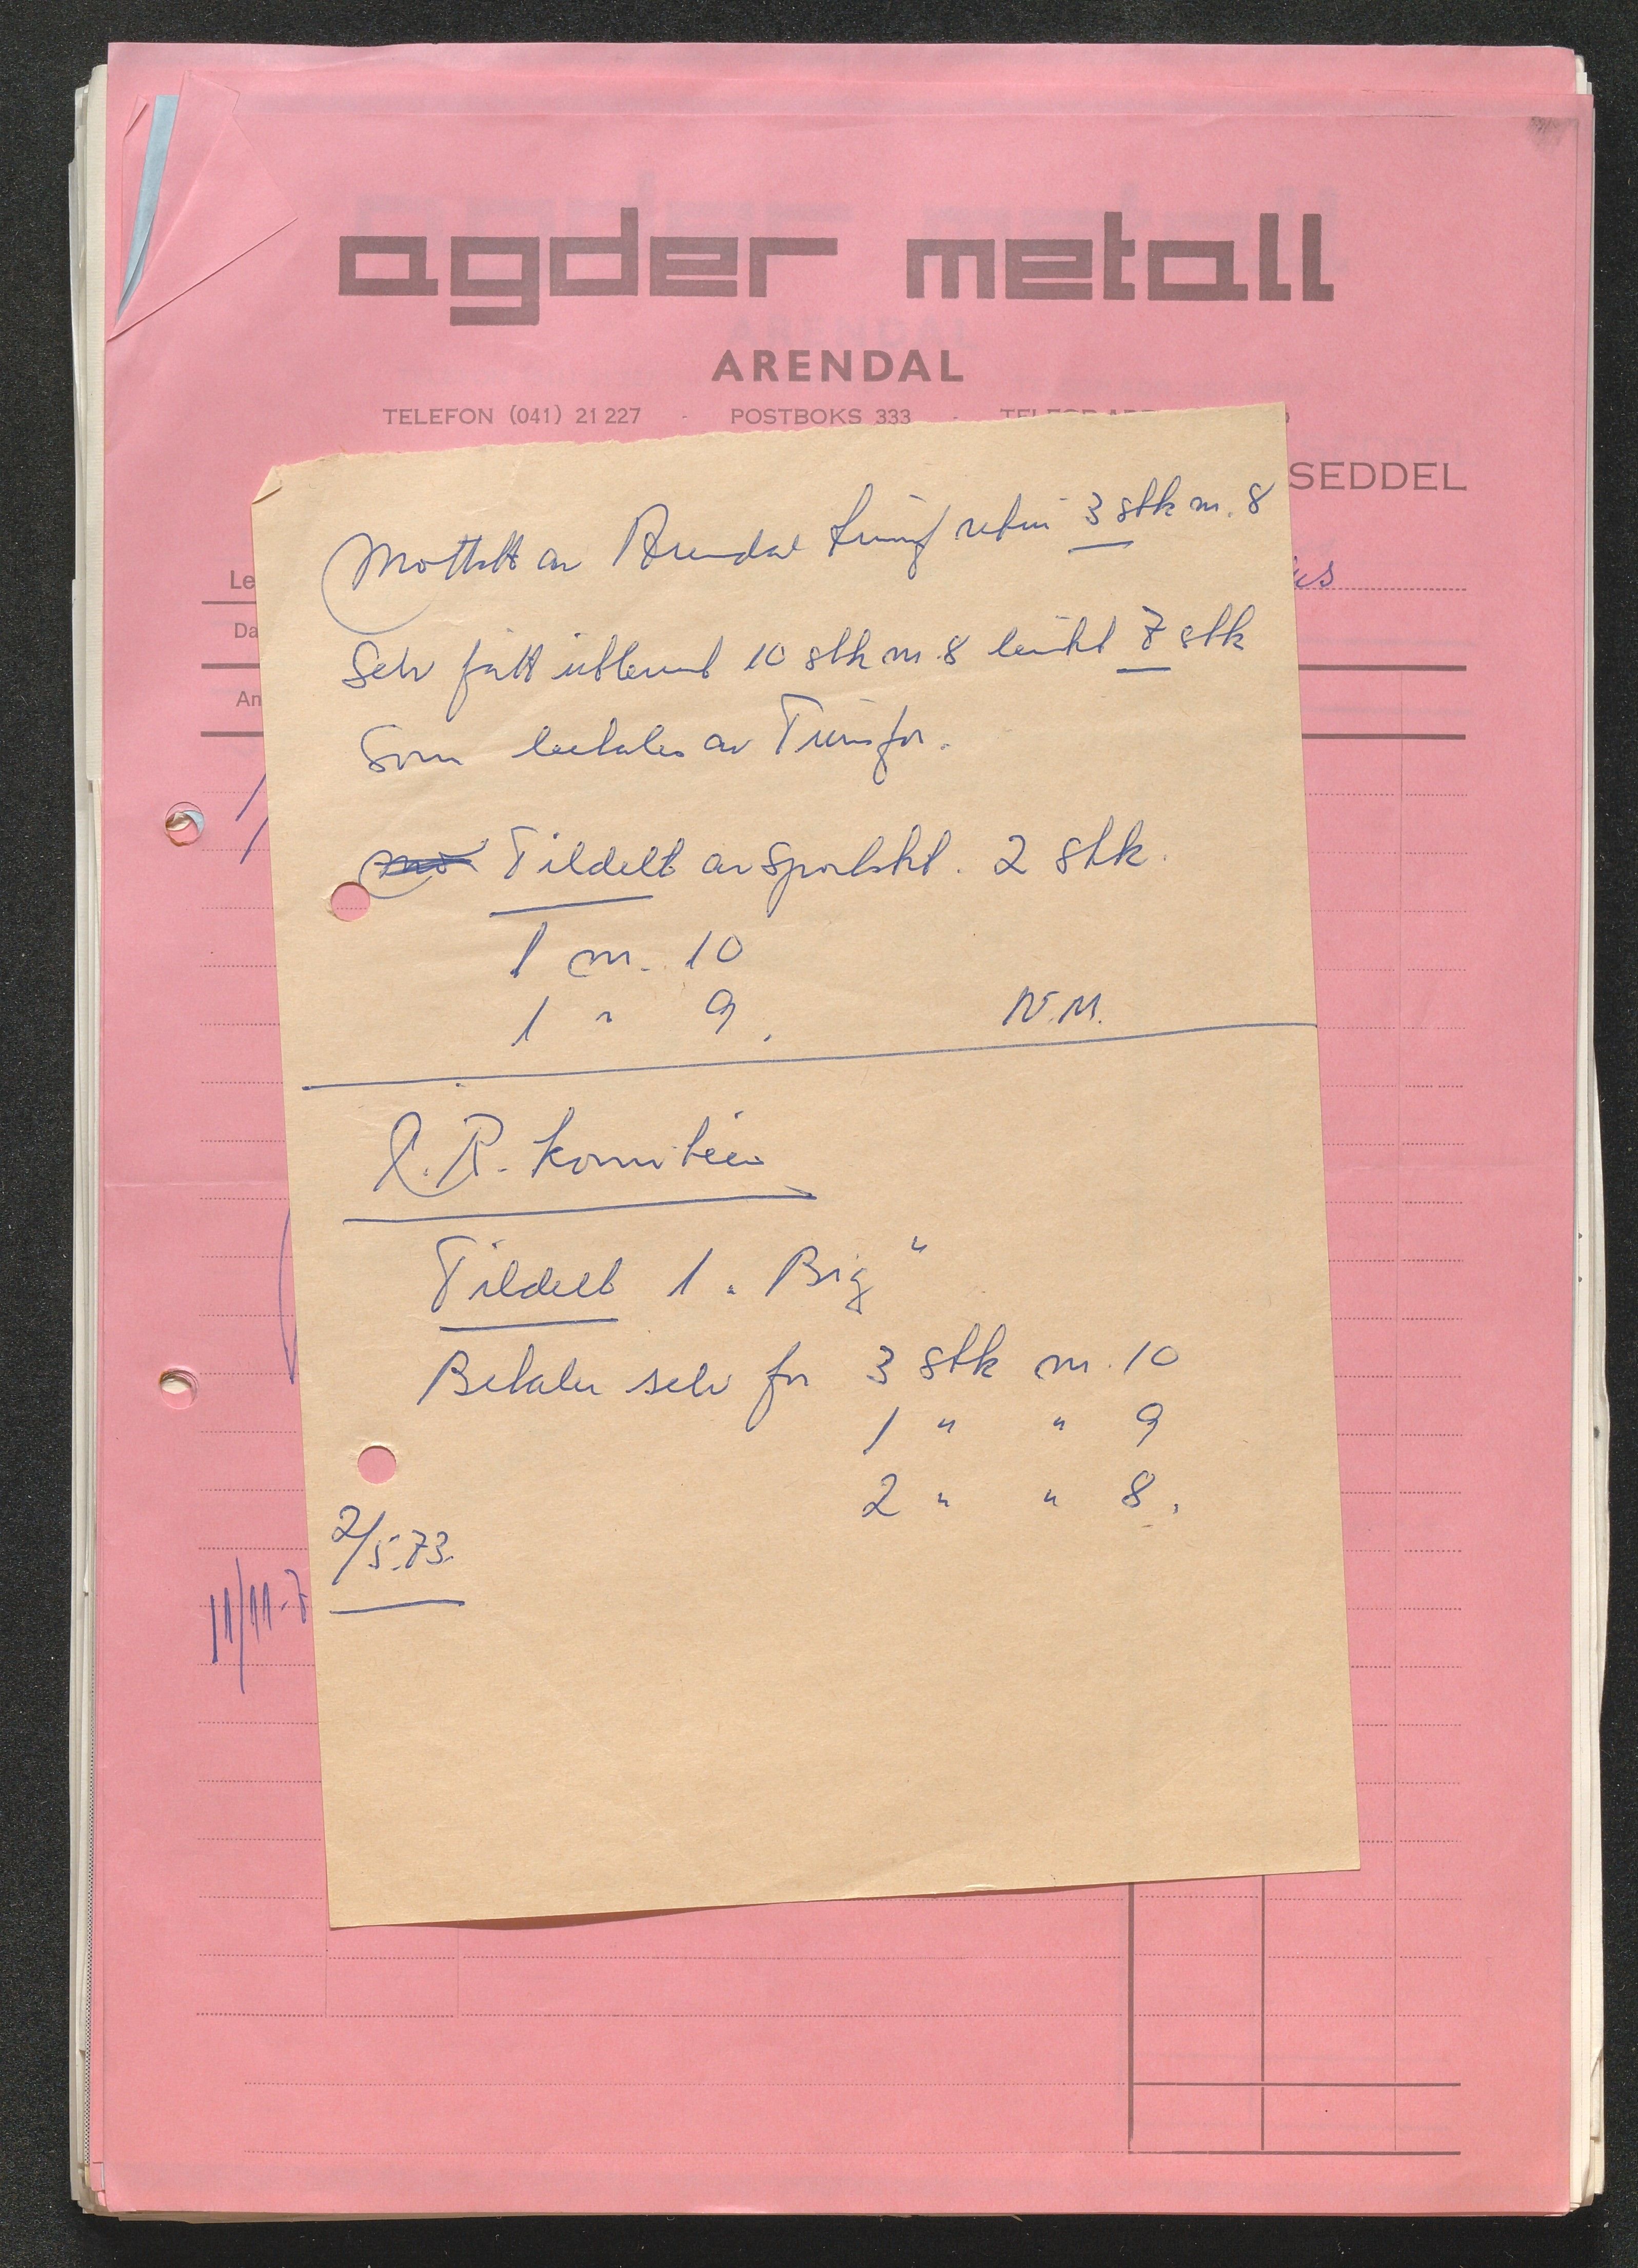 agder metall
ARENDAL
TELEFON (041) 21 227 - POSTBOKS 333 -
SEDDEL
Le
Da
An
Mottatt av Arendal Turnf retur 3 stk m. 8
Selv fått utlevert 10 stk m. 8 brukt 7 stk
Som betales av Turnfor.
Tildelt av Sportskl. 2 stk.
1 m. 10
1 " 9. N.M.
O.R. Komiteen
Tildelt 1 "Big"
Betaler selv for 3 stk m. 10
1 " " 9
2 " " 8.
2/5.73.
11/11-7